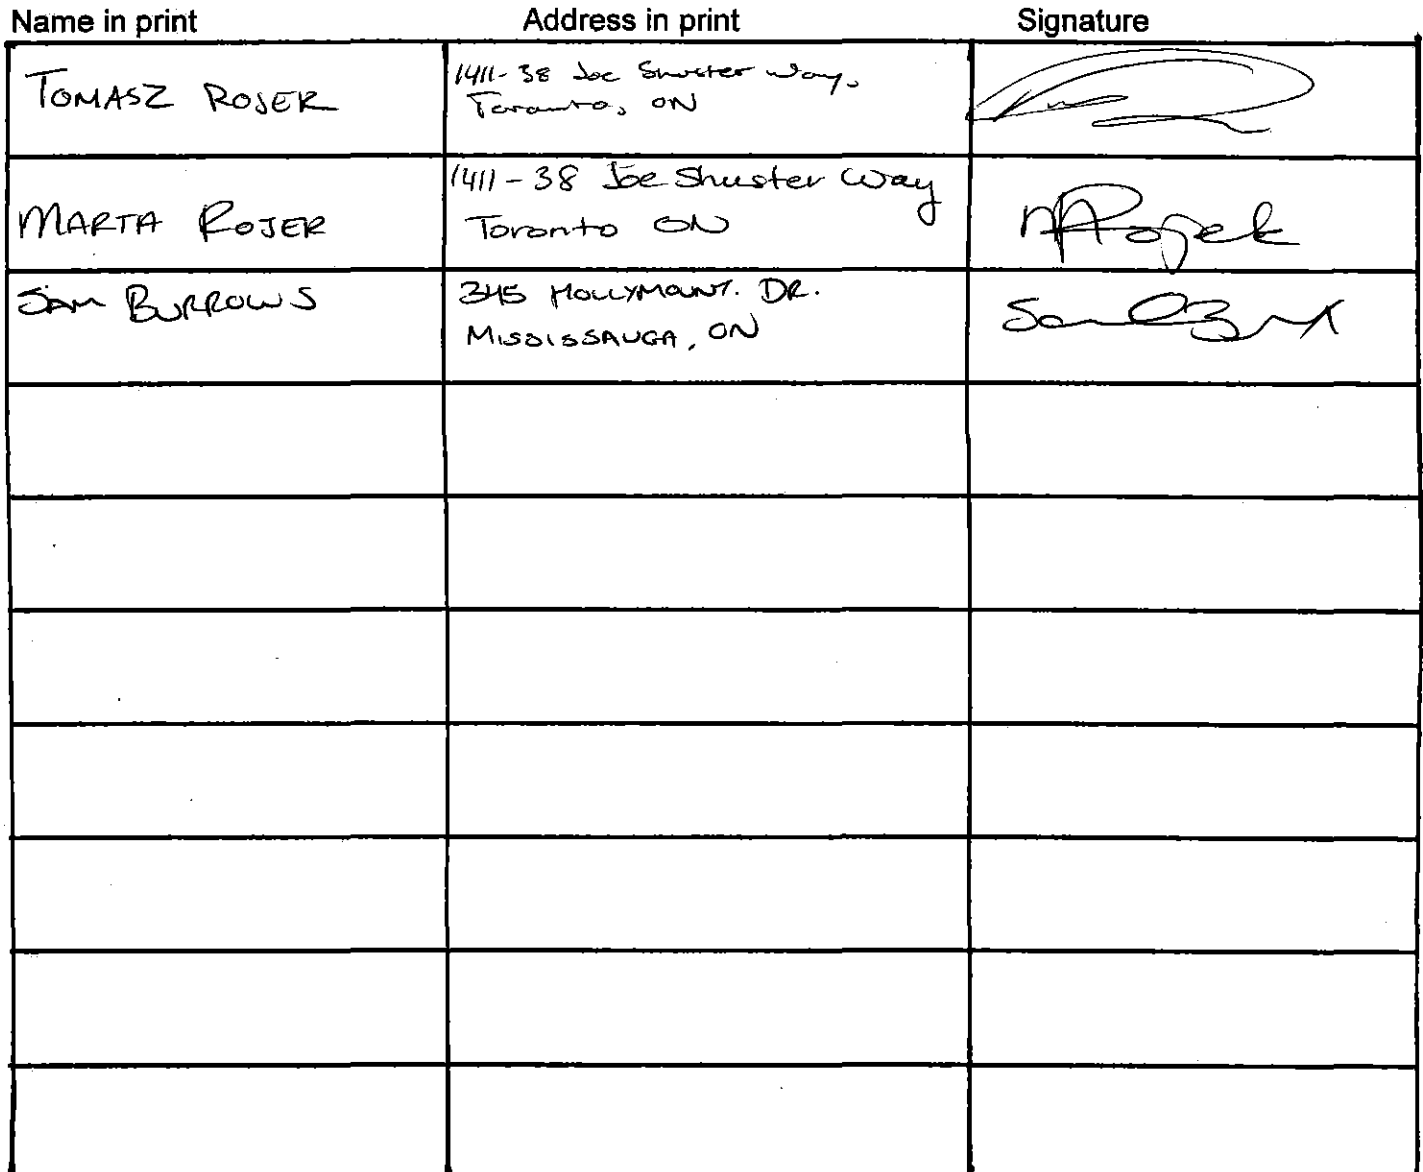 Name in print Address in print Signature
TOMASZ ROJER
1411-38 Joe Shuster Way,
Toronto, ON
MARTA ROJER
1411-38 Joe Shuster Way
Toronto ON
MRojek
SAM BURROWS
345 HOLLYMOUNT. DR.
MISSISSAUGA, ON